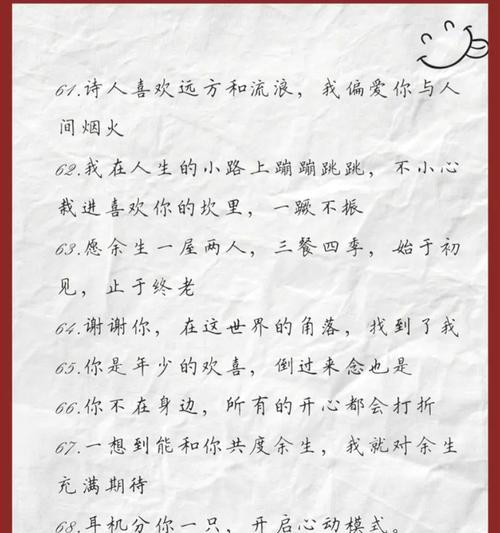 61.诗人喜欢远方和流浪，我偏爱你与人
间烟火
62.我在人生的小路上蹦蹦跳跳，不小心
栽进喜欢你的坎里，一蹶不振
63.愿余生一屋两人，三餐四季，始于初
见，止于终老
64.谢谢你，在这世界的角落，找到了我
65.你是年少的欢喜，倒过来念也是
66.你不在身边，所有的开心都会打折
67.一想到能和你共度余生，我就对余生
充满期待
68.耳机分你一只，开启心动模式。